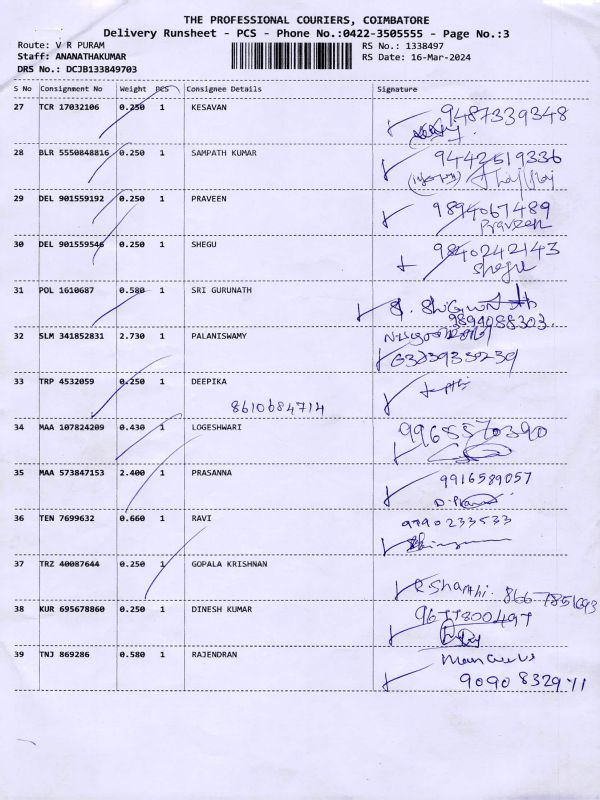 THE PROFESSIONAL COURIERS, COIMBATORE
Delivery Runsheet - PCS - Phone No.:0422-3505555 - Page No.:3
Route: V R PURAM
RS No.: 1338497
Staff: ANANATHAKUMAR
RS Date: 16-Mar-2024
DRS No.: DCJB133849703
S No Consignment No Weight PCS Consignee Details Signature
27 TCR 17032106 0.250 1 KESAVAN 9487339348
28 BLR 5550848816 0.250 1 SAMPATH KUMAR 9442619336
29 DEL 901559192 0.250 1 PRAVEEN 9894067489
Praveen
30 DEL 901559546 0.250 1 SHEGU 9840242143
Shegu
31 POL 1610687 0.580 1 SRI GURUNATH
9894088303
32 SLM 341852831 2.730 1 PALANISWAMY
33 TRP 4532059 0.250 1 DEEPIKA
8610684714
34 MAA 107824209 0.430 1 LOGESHWARI 9965570390
35 MAA 573847153 2.400 1 PRASANNA 9916589057
36 TEN 7699632 0.660 1 RAVI 9790233533
37 TRZ 40087644 0.250 1 GOPALA KRISHNAN
R Shanthi. 866-7851693
38 KUR 695678860 0.250 1 DINESH KUMAR
39 TNJ 869286 0.580 1 RAJENDRAN